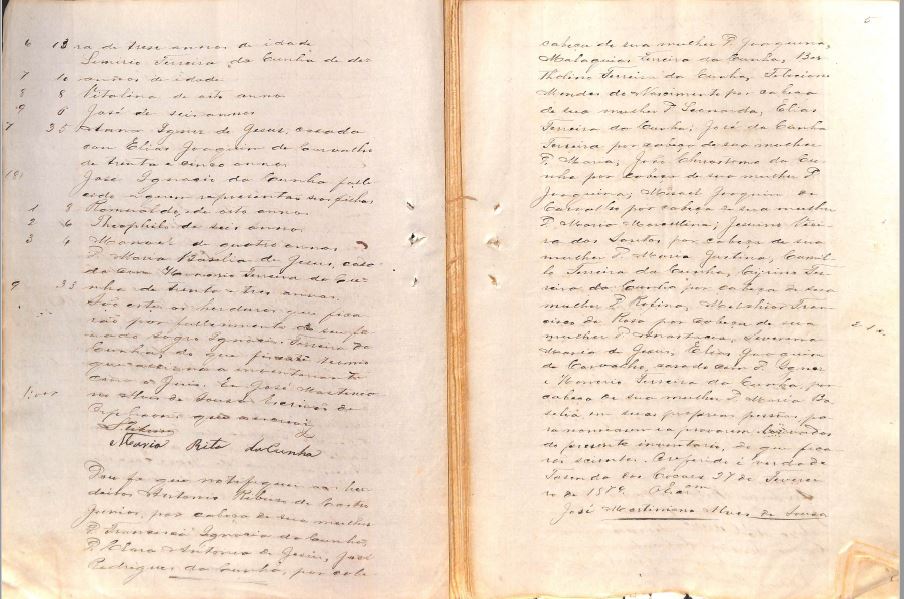 6 13 ra de trese annos de idade
Ferreira da Cunha de des
7 10 annos de idade
8 8 Vitalina de oito annos
9 6 José de seis annos
7 35 Anna Ignez de Jesus, casada
com Elias Joaquim de Carvalho
de trinta e cinco annos
José Ignacio da Cunha falle
cido a quem representas seos filhos
1 8 Romualdo, de oito annos
2 6 Theophilo de seis annos
3 4 Manoel de quatro annos
D. Maria Basilia de Jesus, casa
da com Honorio Ferreira da Cu
9 33 nha de trinta e tres annos
São estes os herdeiros que fica
rão por fallecimento de seu fi
nado sogro Ignacio Ferreira da
Cunha, do que fiz este termo
que assigna a inventariante
com o Juiz. Eu José Martinia
no Alves de Souza Escrivão de
Orphãos que escrevi
Maria Rita da Cunha
Dou fé que notifiquei aos her
deiros Antonio Ribeiro de Castro
Junior, por cabeça de sua mulher
D. Francisca Ignacia da Cunha,
D. Clara Antonia de Jesus, José
Rodrigues da Cunha, por cabe
5
cabeça de sua mulher D. Joaquina,
Malaquias Ferreira da Cunha, Ber
tholino Ferreira da Cunha, Feliciano
Mendes do Nascimento por cabeça
de sua mulher D. Leonarda, Elias
Ferreira da Cunha; José da Cunha
Ferreira por cabeça de sua mulher
D. Maria; João Chrisostomo da Cu
nha por cabeça de sua mulher D.
Joaquina; Misael Joaquim de
Carvalho por cabeça de sua mulher
D. Maria Marcelina; Jesuino Viei
ra dos Santos por cabeça de sua
mulher D. Maria Justina, Camil
lo Ferreira da Cunha, Cyrino Fer
reira da Cunha por cabeça de sua
mulher D. Rufina, Melchior Fran
cisco da Rosa por cabeça de sua
mulher D. Anastacia, Severina
Maria de Jesus, Elias Joaquim
de Carvalho, casado com D. Ignez
e Honorio Ferreira da Cunha, por
cabeça de sua mulher D. Maria Ba
silia em suas proprias pessoas pa
ra nomearem e aprovarem louvados
do presente inventario, do que fica
rão scientes. O referido é verdade
Fazenda dos Cocaes 27 de Feverei
ro de
José Martiniano Alves de Souza